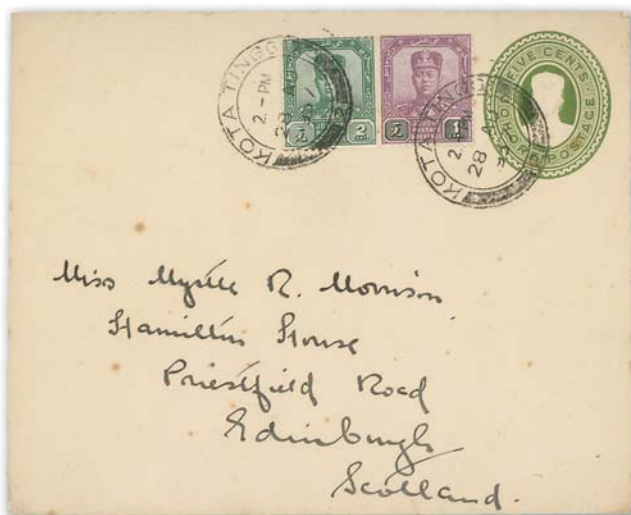 KOTA TINGGI
2.-PM
28 AU
2
KOTA
2.-PM
28 AU
FIVE CENTS
JOHORE POSTAGE
Miss Myrtle R. Morrison,
Hamilton House
Priestfield Road
Edinburgh
Scotland.